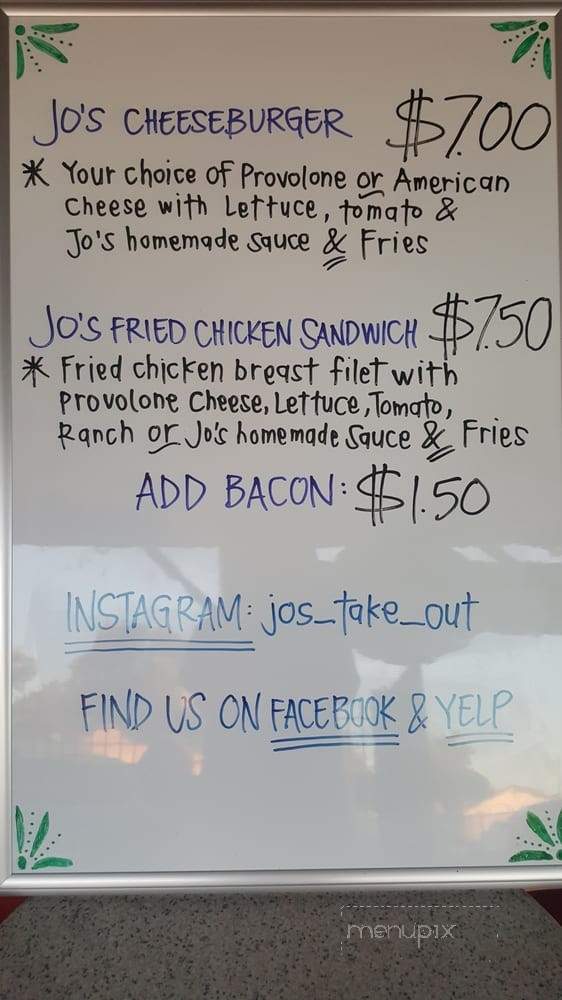 JO'S CHEESEBURGER $7.00
* Your choice of Provolone or American
Cheese with Lettuce, tomato &
Jo's homemade sauce & Fries
JO'S FRIED CHICKEN SANDWICH $7.50
* Fried chicken breast filet with
Provolone Cheese, Lettuce, Tomato,
Ranch or Jo's homemade sauce & Fries
ADD BACON: $1.50
INSTAGRAM: jos_take_out
FIND US ON FACEBOOK & YELP
menupix